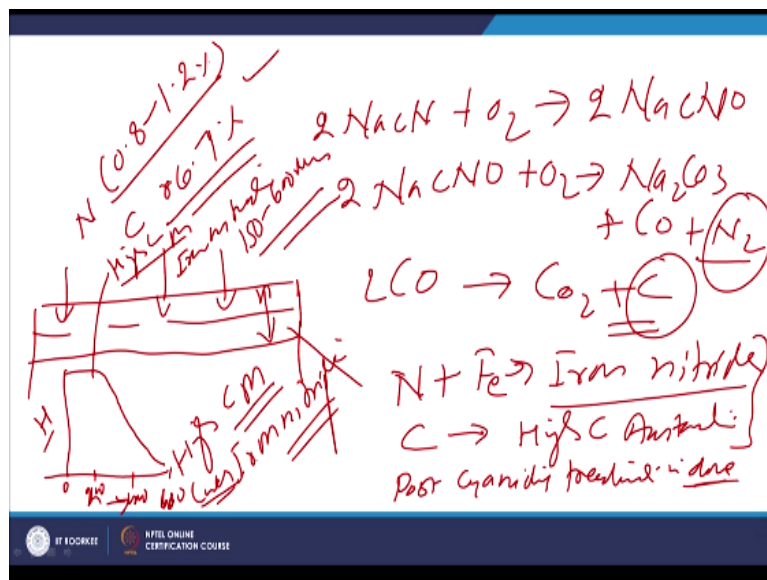 N (0.8-1.2%) ✓
C 0.6-0.7%
High C M
Iron nitride
150-600
2NaCN + O2 → 2NaCNO
2NaCNO + O2 → Na2CO3
+ CO + N2
2CO → CO2 + C
N + Fe → Iron nitride
C → High C Austeni
Post Cyaniding treatment is done
H
0
600
High CM
Iron nitride
IIT ROORKEE
NPTEL ONLINE
CERTIFICATION COURSE